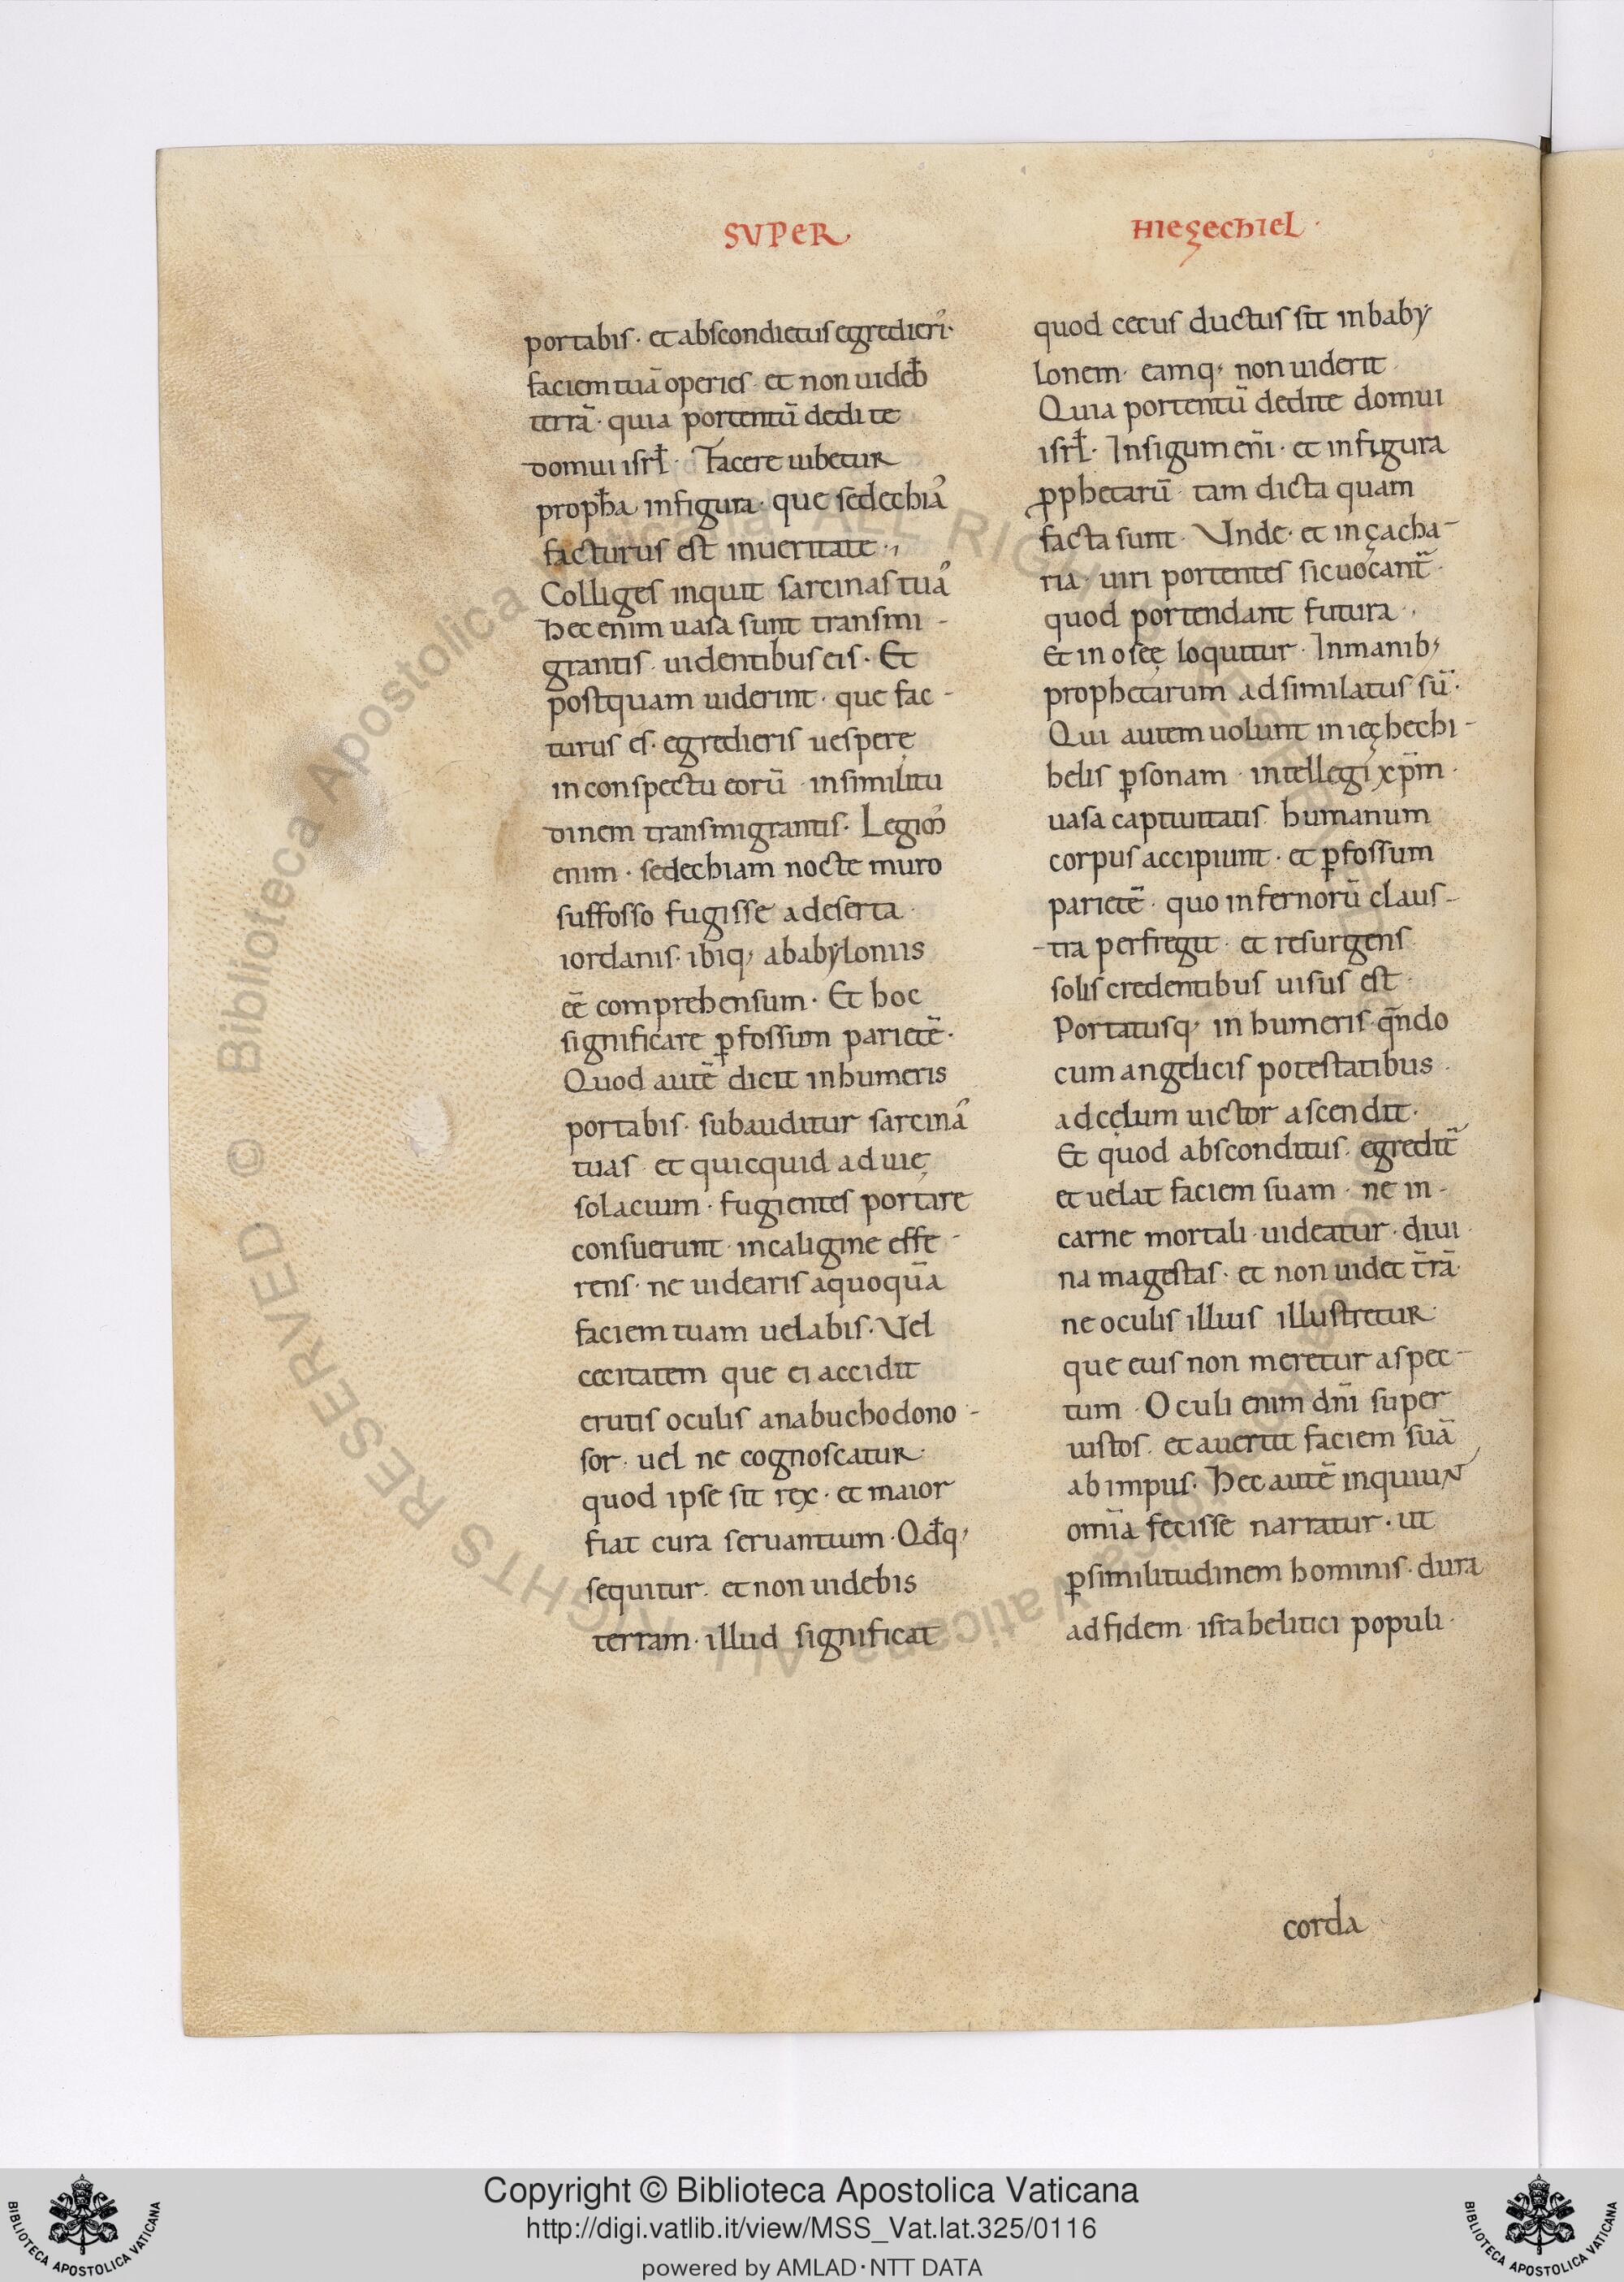 SVPER
HIEZECHIEL ·
portabis · et abscondetus egredieri᷒ ·
faciem tuā operies · et non uideb̄
terrā · quia portentū dedi te
domui isrł · Facere iubetur
proph̄a in figura · que sedechia᷒
facturus est in ueritate ·,
Colliges inquit sarcinas tua᷒
hec enim uasa sunt transmi -
grantis · uidentibus eis · Et
postquam uiderint · que fac -
turus es · egredieris uesperę
in conspectu eorū · in similitu
dinem transmigrantis · Legim᷒
enim · sedechiam nocte muro
suffosso fugisse ad eserta ·
iordanis · ibiq; a babyloniis
eē comprehensum · Et hoc
significare ꝑfossum parietē ·
Quod autē dicit in humeris
portabis · subauditur sarcina᷒
tuas · et quicquid ad uię
solacium · fugientes portare
consuerunt · in caligine effe -
rens · ne uidearis a quoquā
faciem tuam uelabis · Vel
cecitatem que ei accidit
erutis oculis a nabuchodono -
sor · uel ne cognoscatur ·
quod ipse sit rex · et maior
fiat cura seruantium · Qđq;
sequitur · et non uidebis
terram · illud significat
quod cecus ductus sit in baby
lonem · eamq; non uiderit ·
Quia portentū dedi te domui
isrł · In sigum enī · et in figura
ꝓphetarū · tam dicta quam
facta sunt · Vnde · et in çacha -
ria · uiri portentes sic uocant̃ ·
quod portendant futura ·,
Et in oseę loquitur · In manib;
prophetarum adsimilatus sū ·
Qui autem uolunt in ieçhechi -
helis ꝑsonam · intellegi xp̄m ·
uasa captiuitatis humanum
corpus accipiunt · et ꝑfossum
parietē · quo infernorū claus -
- tra perfregit · et resurgens
solis credentibus uisus est ·
Portatusq; in humeris · qn̄do
cum angelicis potestatibus ·
ad cęlum uictor ascendit ·
Et quod absconditus · egredit̃
et uelat faciem suam · ne in -
carne mortali · uideatur · diui ·
na magestas · et non uidet t̄rā ·
ne oculis illius illustretur ·
que eius non meretur aspec -
tum · Oculi enim dn̄i super
iustos · et auertit faciem suā
ab impiis · Hec autē inquiunt
omīa fecisse narratur · ut
ꝑ similitudinem hominis · dura
ad fidem · israhelitici populi ·
corda
Copyright © Biblioteca Apostolica Vaticana
http://digi.vatlib.it/view/MSS_Vat.lat.325/0116
powered by AMLAD·NTT DATA